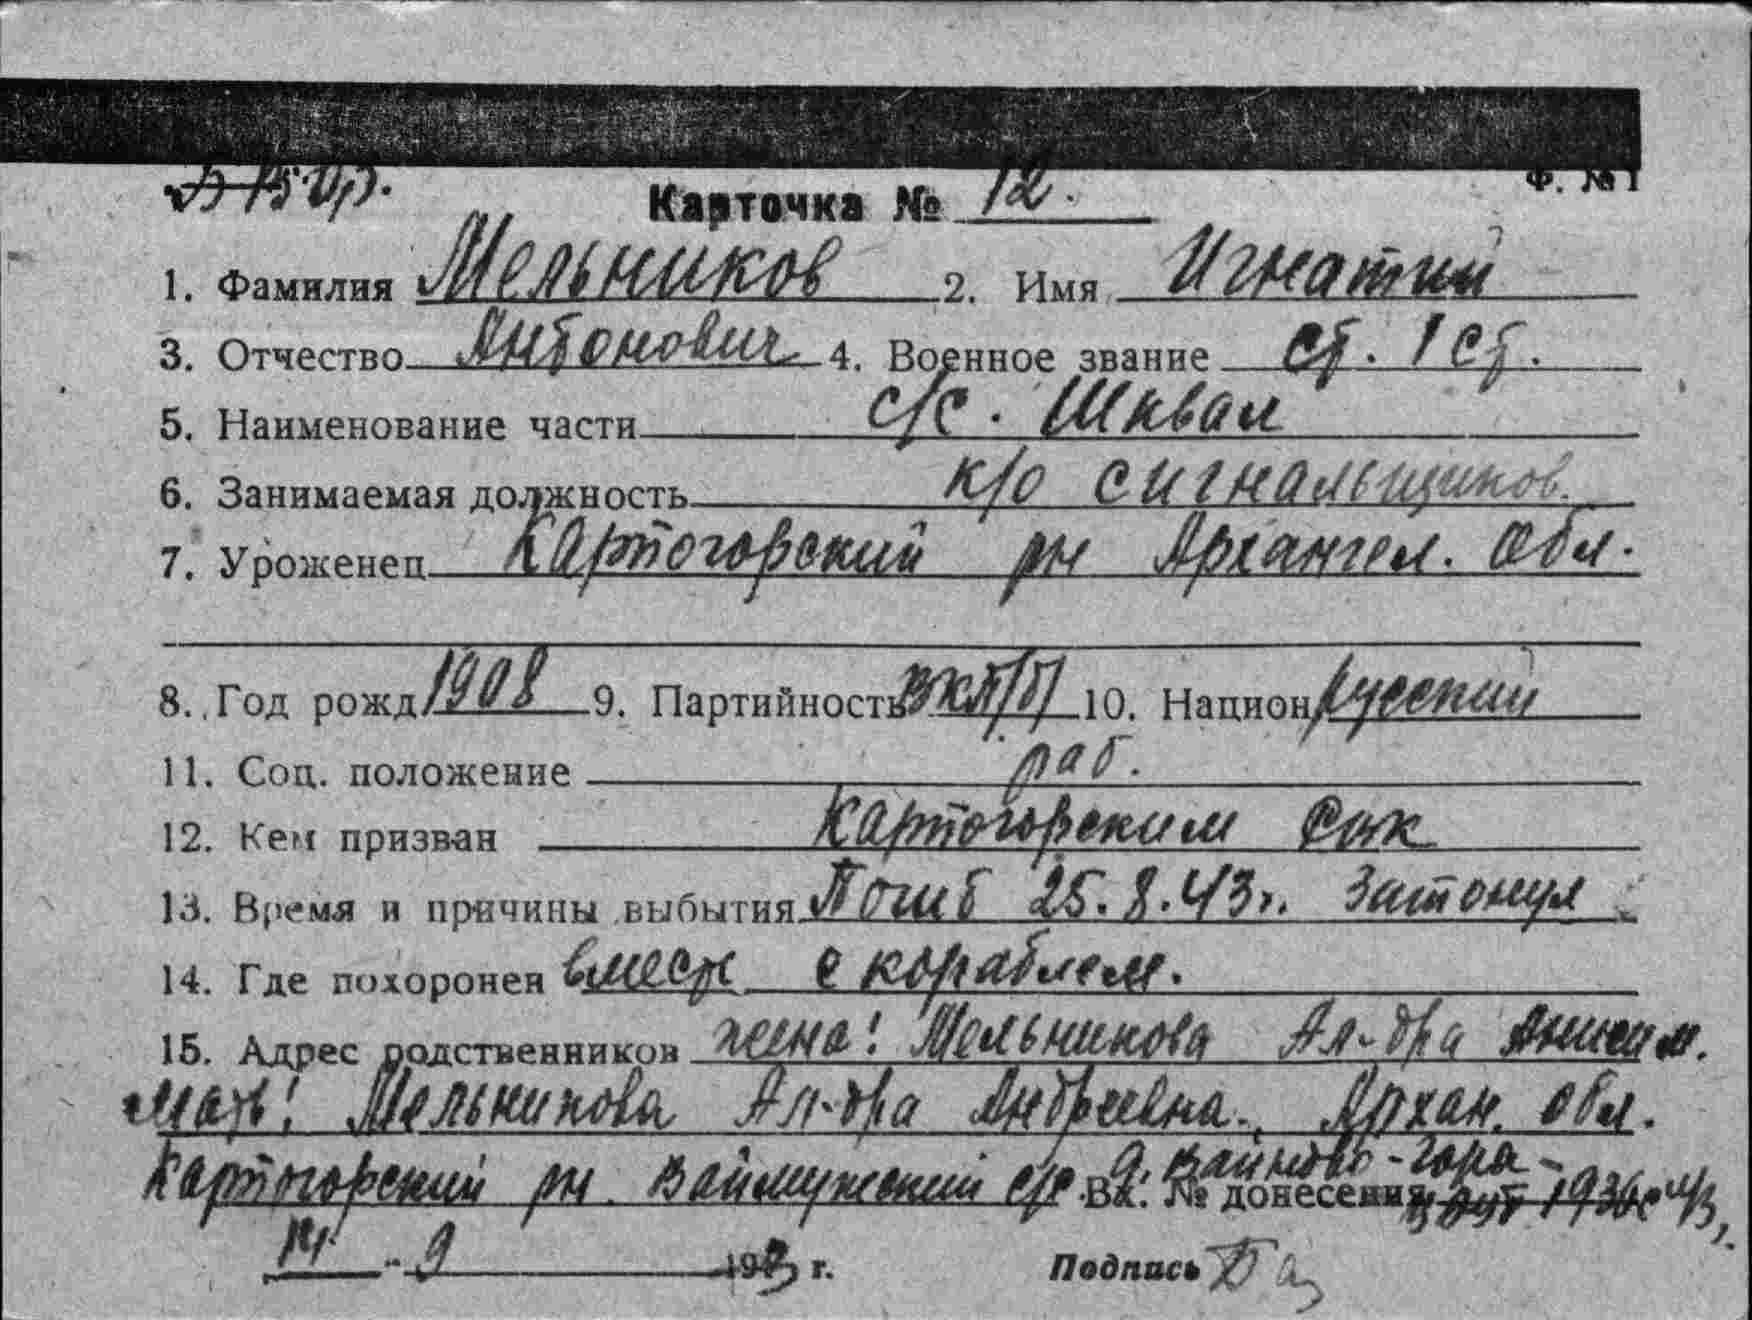 Ф. № 1
Карточка № 12.
1. Фамилия Мельников 2. Имя Игнатий
3. Отчество Антонович 4. Военное звание ст. 1 ст.
5. Наименование части с/с. Шквал
6. Занимаемая должность к/о сигнальщиков.
7. Уроженец Картогорский рн Архангел. Обл.
8. Год рожд 1908 9. Партийность ВКП/б/ 10. Национ русский
11. Соц. положение раб.
12. Кем призван Картогорским Рвк
13. Время и причины выбытия Погиб 25.8.43г. Затонул
14. Где похоронен вместе с кораблем.
15. Адрес родственников жена: Мельникова Ал-дра Анисим.
мать: Мельникова Ал-дра Андреевна, Архан. обл.
Картогорский рн. Ваймушский с/с д. Ваймово-Гора
Вх. № донесения 1936с 43
14 - 9 1943 г. Подпись